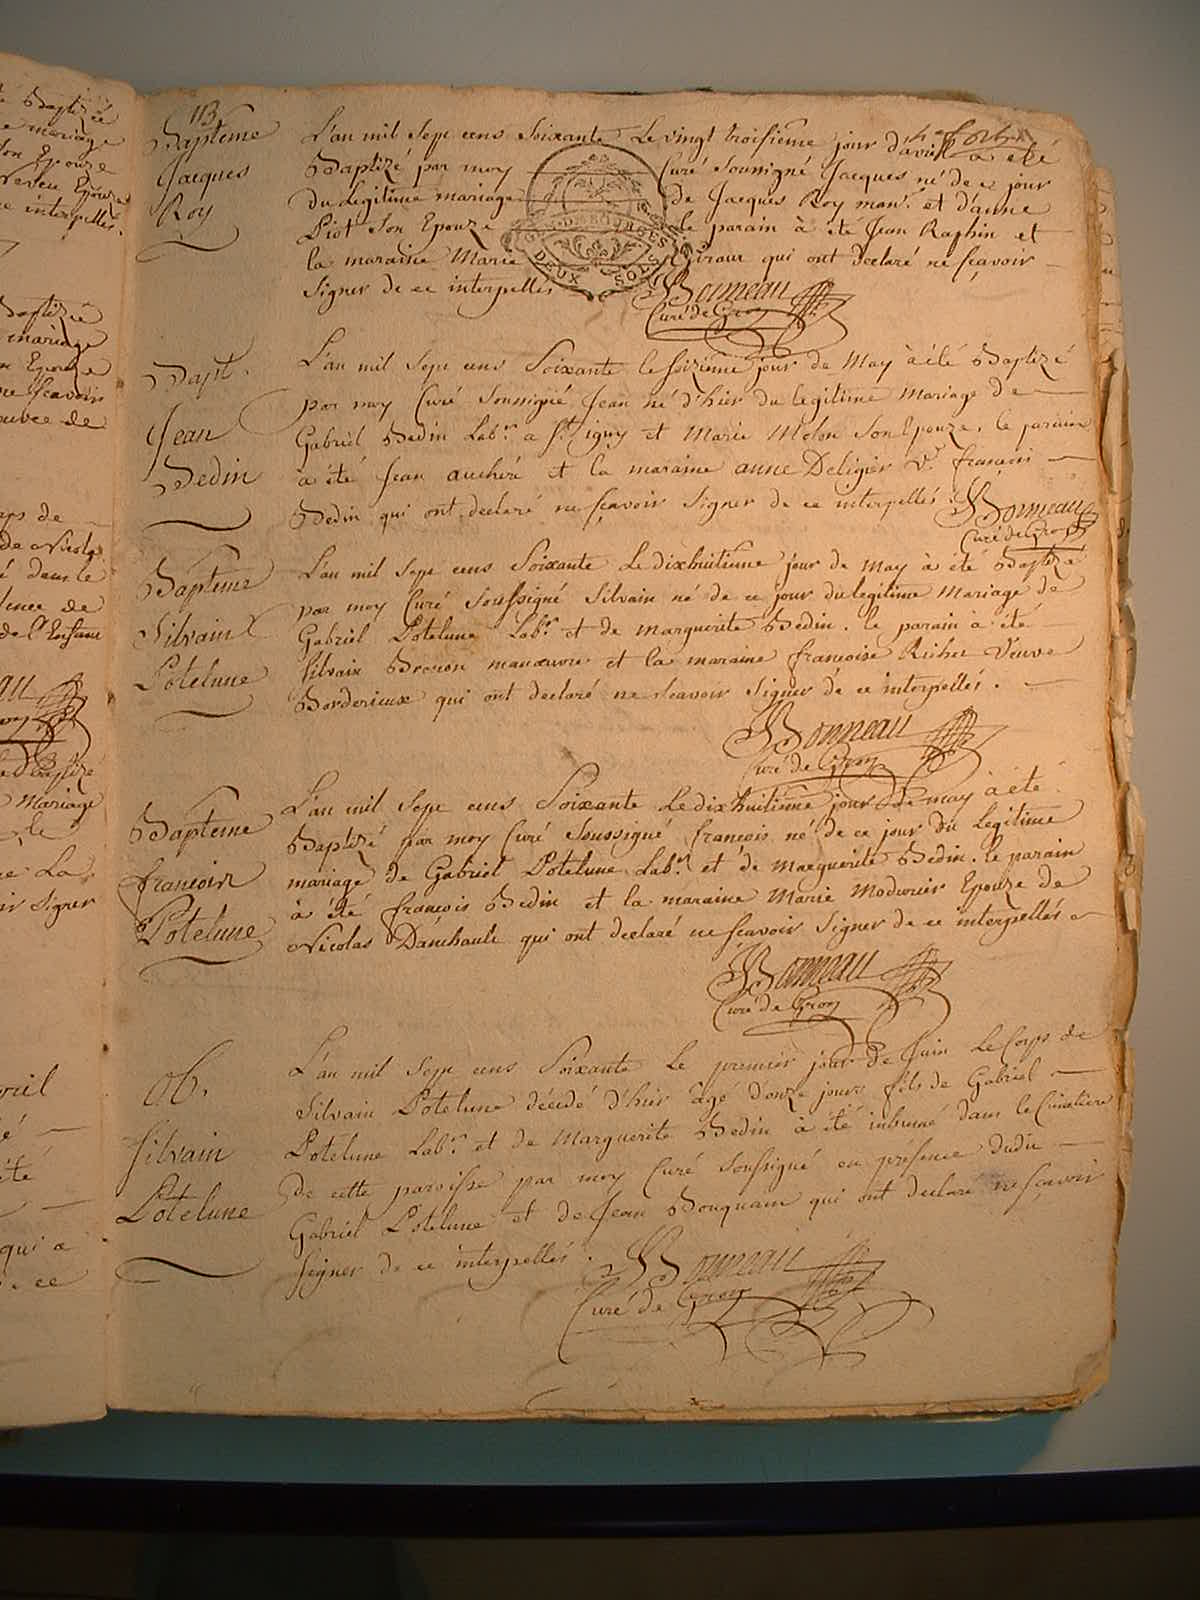 113
Bapteme
Jacques
Roy
L'an mil sept cens Soixante Le vingt troisiême jour d'avril a été
Baptizé par moy Curé Soussigné Jacques né de ce jour
du Legitime mariage de Jacques Roy man.r et d'anne
Piot Son Epouze le parain à été Jean Raphin et
la maraine Marie Giraux qui ont declaré ne sçavoir
Signer de ce interpellés
Bonneau
Curé de Gron
GN. DE BOURGES
DEUX SOLS
Bapt.
Jean
Bedin
L'an mil Sept cens Soixante le seizieme jour de May à été Baptizé
par moy Curé Soussigné Jean né d'hier du legitime Mariage de
Gabriel Bedin Lab.r a St. Igny et Marie Melon Son Epouze, le parain
à été Jean aucheré et la maraine anne Deligier V.e françois
Bedin qui ont declaré ne sçavoir Signer de ce interpellés.
Bonneau
Curé de Gron
Bapteme
Silvain
Potelune
L'an mil Sept cens Soixante Le dixhuitiême jour de May à été Baptizé
par moy Curé Soussigné Silvain né de ce jour du legitime Mariage de
Gabriel Potelune Lab.r et de Marguerite Bedin. le parain à été
Silvain manœuvre et la maraine françoise Richer Veuve
Borderieux qui ont declaré ne sçavoir Signer de ce interpellés.
Bonneau
Curé de Gron
Bapteme
françois
Potelune
L'an mil Sept cens Soixante Le dixhuitiême jour de may à été
Baptizé par moy Curé Soussigné françois né de ce jour du Legitime
mariage de Gabriel Potelune Lab.r et de Marguerite Bedin. le parain
à été françois Bedin et la maraine Marie Epouze de
Nicolas Danchault qui ont declaré ne sçavoir Signer de ce interpellés
Bonneau
Curé de Gron
Ob.
Silvain
Potelune
L'an mil Sept cens Soixante Le premier jour de Juin Le Corps de
Silvain Potelune décédé d'hier âgé d'onze jours fils de Gabriel
Potelune Lab.r et de Marguerite Bedin à été inhumé dans le Cimetière
de cette paroisse par moy Curé Soussigné en présence dudit
Gabriel Potelune et de Jean Bouquain qui ont declaré ne sçavoir
Signer de ce interpellés.
Bonneau
Curé de Gron